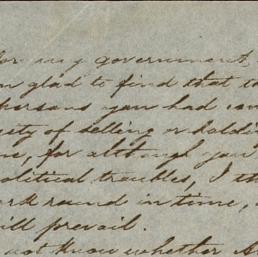 for my government
glad to find that
persons you had
of selling or
for although you
political troubles, I
round in time,
will prevail.
not know whether